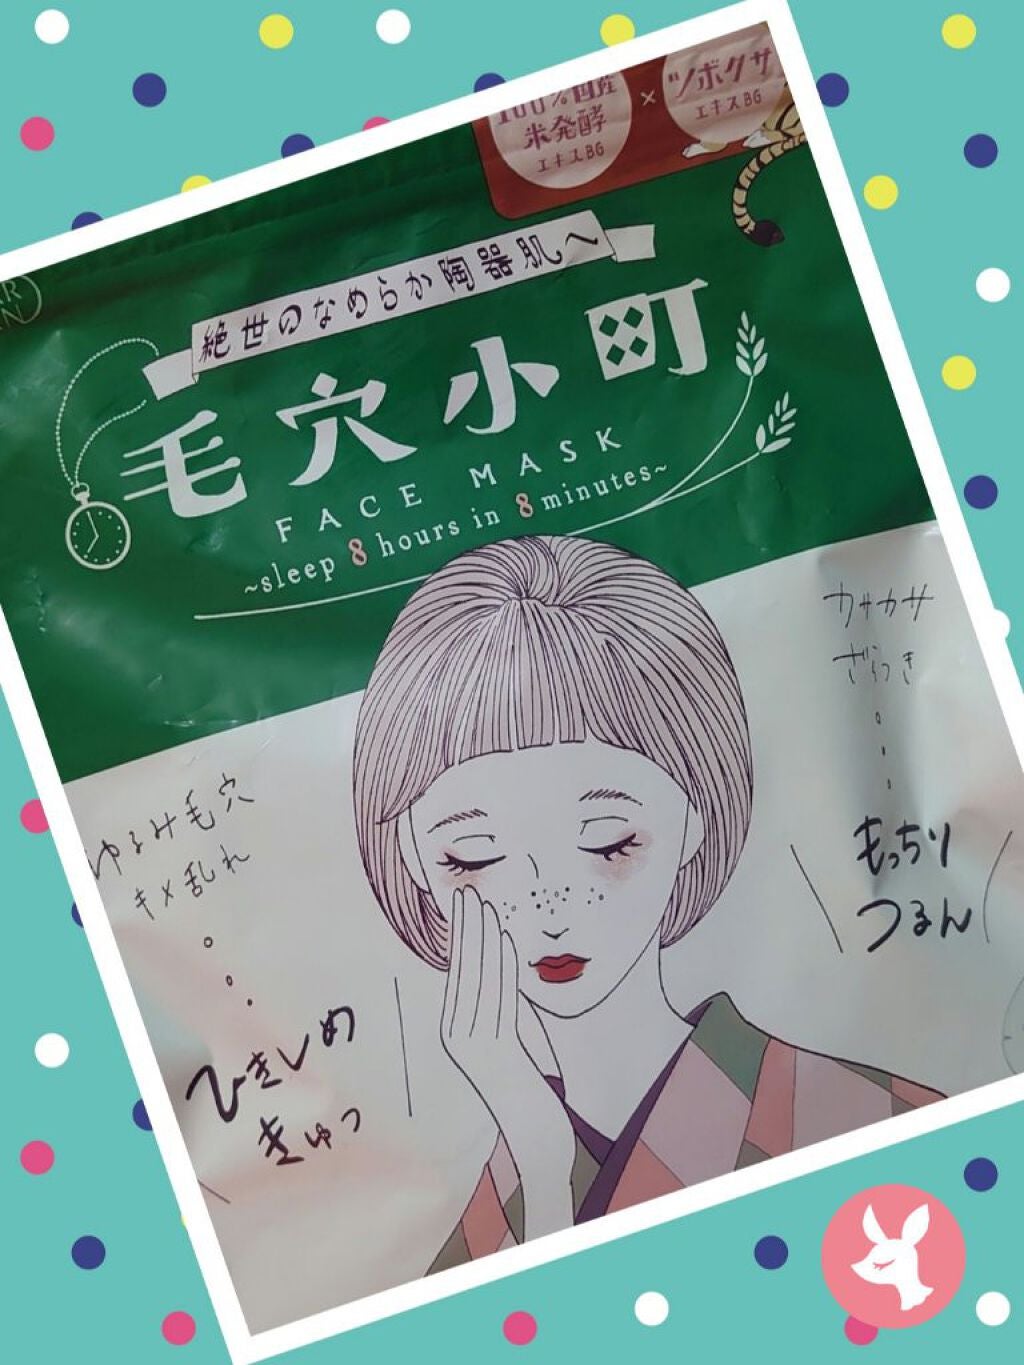 100%国産
米発酵
エキスBG
×
ツボクサ
エキスBG
絶世のなめらか陶器肌へ
毛穴小町
FACE MASK
~sleep 8 hours in 8 minutes~
カサカサ
ざらつき
もっちり
つるん
ゆるみ毛穴
キメ乱れ
ひきしめ
きゅっ